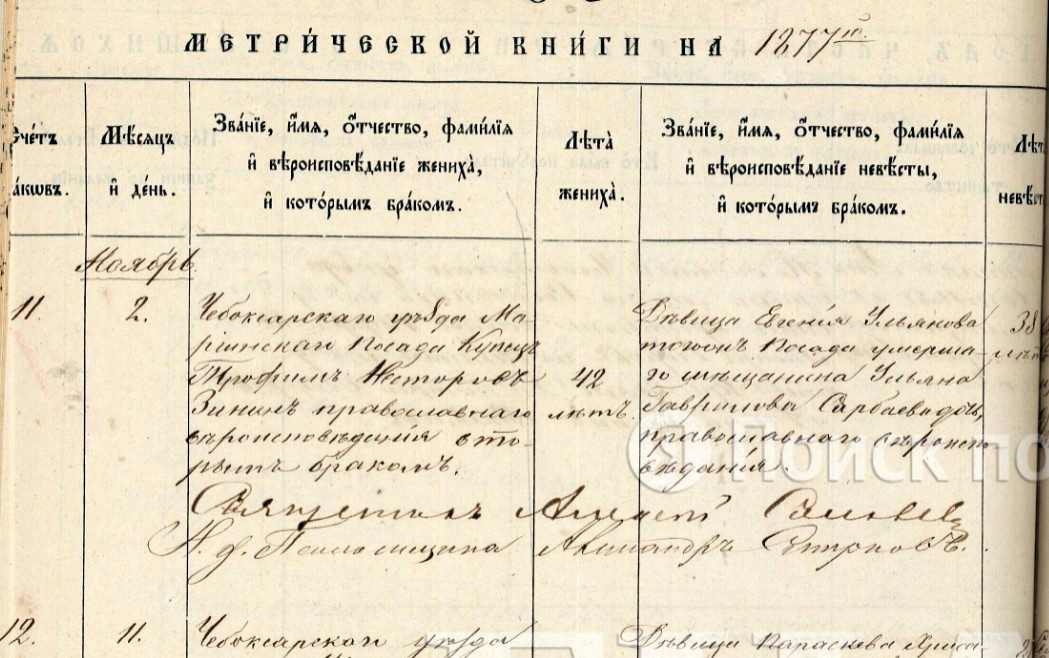 МЕТРИ́ЧЕСКОЙ КНИ́ГИ НА 1877 го.
Счéтъ
браковъ.
Мѣсяцъ
и́ дéнь.
Звáнїе, и́мя, о́тчество, фами́лїя
и́ вѣроисповѣ́данїе женихà,
и́ котóрымъ брáкомъ.
Лѣтà
женихà.
Звáнїе, и́мя, о́тчество, фами́лїя
и́ вѣроисповѣ́данїе невѣ́сты,
и́ котóрымъ брáкомъ.
Лѣт
невѣст
Ноябрь
11.
2.
Чебоксарскаго уѣзда Ма-
риинскаго Посада Купецъ
Трофимъ Несторовъ
Зининъ православнаго
вѣроисповѣданія вто-
рымъ бракомъ.
42
лѣтъ.
Дѣвица Евгенія Ульянова
тогоже Посада умерша-
го мѣщанина Ульяна
Гаврилова дочь,
православнаго вѣроиспо-
вѣданія.
38
лѣтъ
Поиск по
Священникъ Алексѣй
И. д. Псаломщика Александръ
12.
11.
Чебоксарскаго уѣзда
Дѣвица Параскева